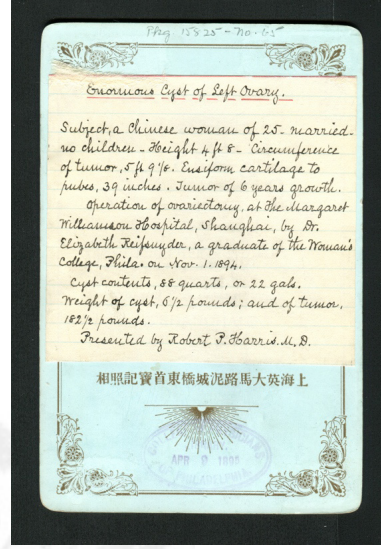 Pkg 15825 - No. 65
Enormous Cyst of Left Ovary.
Subject, a Chinese woman of 25- married-
no children - Height 4 ft 8 - Circumference
of tumor, 5 ft 9 1/8. Ensiform cartilage to
pubes, 39 inches. Tumor of 6 years growth.
Operation of ovariectomy, at the Margaret
Williamson Hospital, Shanghai, by Dr.
Elizabeth Reifsnyder, a graduate of the Woman's
College, Phila. on Nov. 1. 1894.
Cyst contents, 88 quarts, or 22 gals.
Weight of cyst, 6 1/2 pounds; and of tumor,
182 1/2 pounds.
Presented by Robert P. Harris. M.D.
相照記寶首東橋城泥路馬大英海上
APR 9 1895
PHILADELPHIA